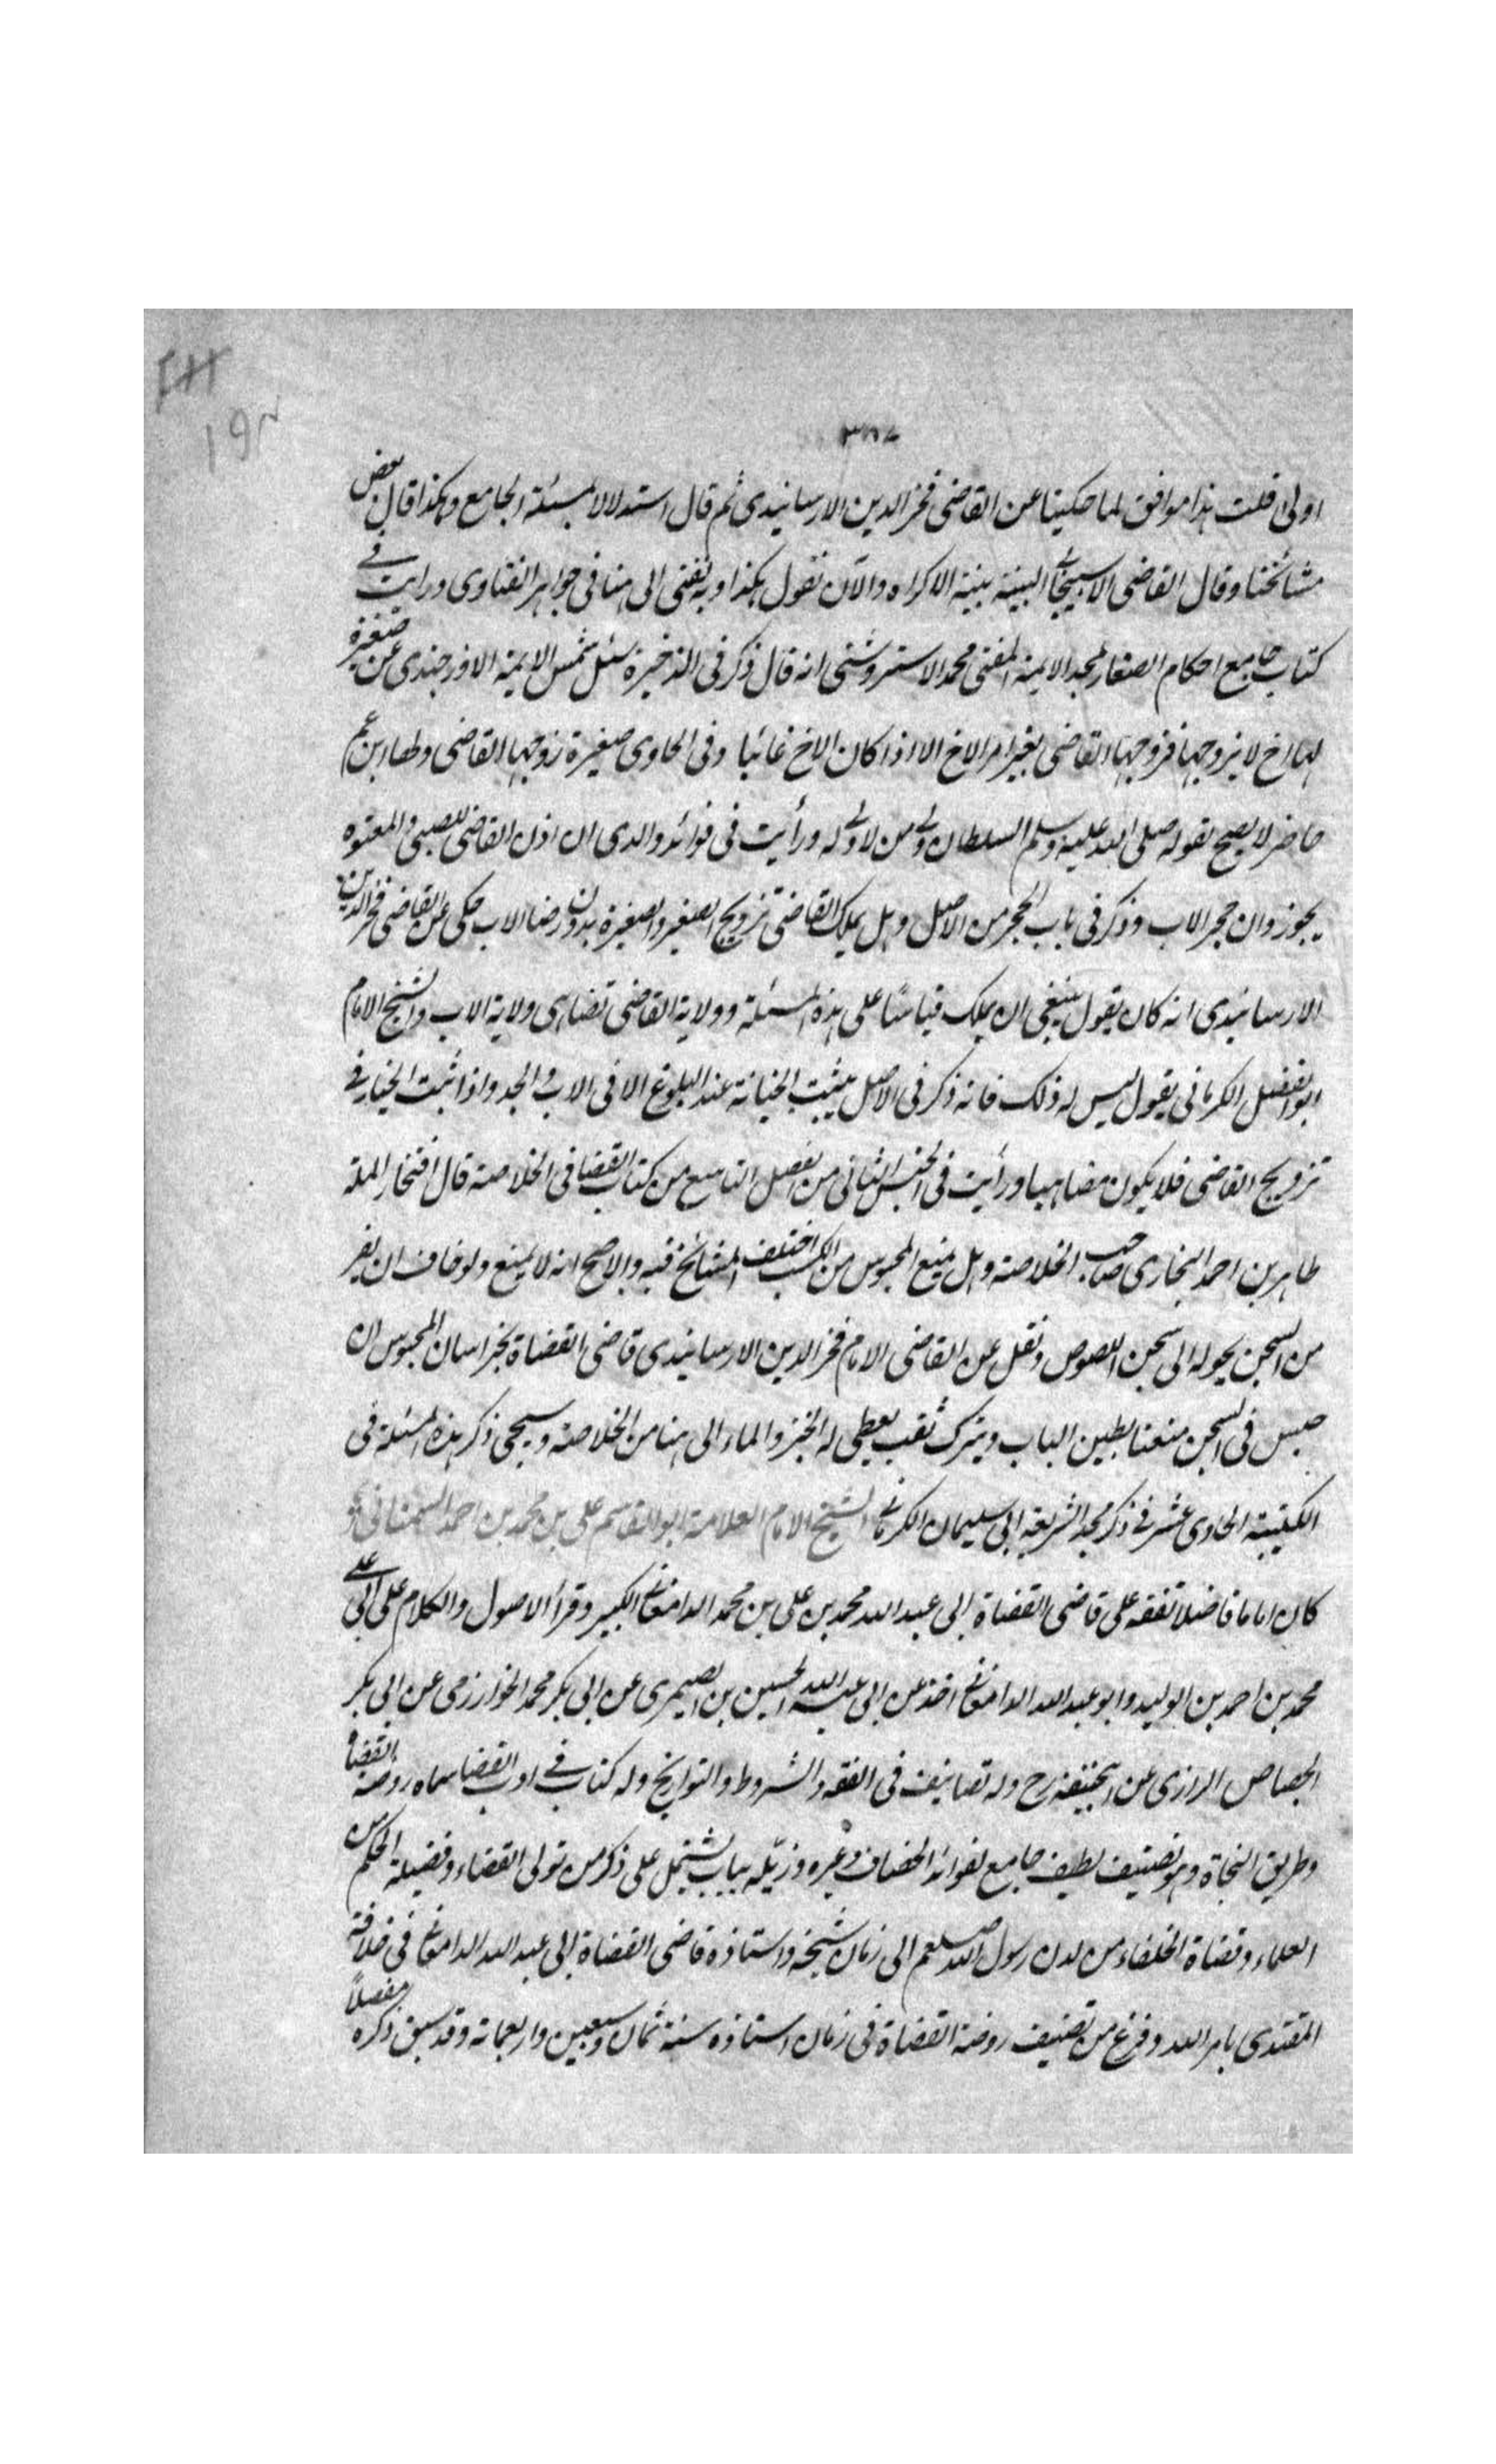 اولى قلت هذا موافق لما حكينا عن القاضى فخر الدين الارسانيدى ثم قال استدلالا بمسئلة الجامع وهكذا قال بعض
مشائخنا وقال القاضى الاسبيجابى البينة بينة الاكراه والآن نقول هكذا وبه نفتى الى هنا فى جواهر الفتاوى ورايت فى
كتاب جامع احكام الصغار لمجد الايمة المفتى محمد الاستروشنى انه قال ذكر فى الذخيرة سئل شمس الايمة الاوزجندى عن صغيرة
لها اخ لا يزوجها فزوجها القاضى بغير امر الاخ الا اذا كان الاخ غائبا وفى الحاوى صغيرة زوجها القاضى ولها ابن عم
حاضر لا يصح بقوله صلى الله عليه وسلم السلطان ولى من لا ولى له ورأيت فى فوائد والدى ان اذن القاضى للصبى والمعتوه
يجوز وان حجر الاب وذكر فى باب الحجر من الاصل وهل يملك القاضى تزويج الصغير والصغيرة بدون رضا الاب حكى عن القاضى فخر الدين
الارسانيدى انه كان يقول ينبغى ان يملك قياسًا على هذه المسئلة وولاية القاضى تضاهى ولاية الاب والشيخ الامام
ابو الفضل الكرمانى يقول ليس له ذلك فانه ذكر فى الاصل يثبت الخيانة عند البلوغ الا فى الاب والجد واذا ثبت الخيار فى
تزويج القاضى فلا يكون مضاهيا ورأيت فى الجنس الثانى من الفصل التاسع من كتاب القضا فى الخلاصة قال افتخار الملة
طاهر بن احمد البخارى صاحب الخلاصة وهل يمنع المحبوس من الكسب اختلف المشائخ فيه والاصح انه لا يمنع ولو خاف ان يفر
من السجن يحوله الى سجن اللصوص ونقل عن القاضى الامام فخر الدين الارسانيدى قاضى القضاة بخراسان المحبوس ان
حبس فى السجن متعنتا يطين الباب ويترك ثقب يعطى له الخبز والماء الى هنا من الخلاصة وسيجى ذكر هذه المسئلة فى
الكتيبة الحادى عشر فى ذكر مجد الشريعة ابى سليمان الكرمانى الشيخ الامام العلامة ابو القاسم على بن محمد بن احمد السمنانى
كان اماما فاضلا تفقه على قاضى القضاة ابى عبد الله محمد بن على بن محمد الدامغانى الكبير وقرأ الاصول والكلام على ابى على
محمد بن احمد بن الوليد وابو عبد الله الدامغانى اخذ عن ابى عبد الله الحسين بن الصيمرى عن ابى بكر محمد الخوارزمى عن ابى بكر
الجصاص الرازى عن ابيحنيفة رح وله تصانيف فى الفقه والشروط والتواريخ وله كتاب فى ادب القضا سماه روضة القضاة
وطريق النجاة وهو تصنيف لطيف جامع لفوائد الخصاف وغيره وذيّله بباب يشتمل على ذكر من تولى القضاء وفضيلة الحكم من
العلماء وقضاة الخلفاء من لدن رسول الله صلعم الى زمان شيخه واستاذه قاضى القضاة ابى عبد الله الدامغانى فى خلافة
المقتدى بامر الله وفرغ من تصنيف روضة القضاة فى زمان استاذه سنة ثمان وسبعين واربعمائة وقد سبق ذكره مفصلاً